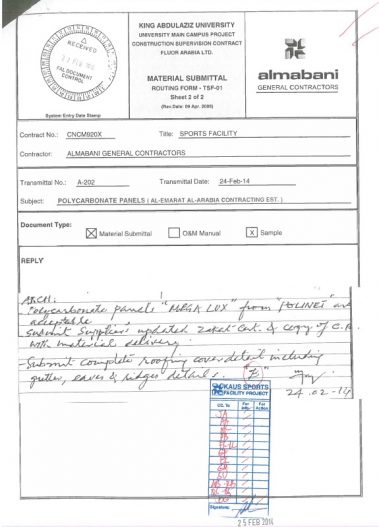 KING ABDULAZIZ UNIVERSITY
UNIVERSITY MAIN CAMPUS PROJECT
CONSTRUCTION SUPERVISION CONTRACT
FLUOR ARABIA LTD.
RECEIVED
FAL DOCUMENT
CONTROL
System Entry Date Stamp
MATERIAL SUBMITTAL
ROUTING FORM - TSF-01
Sheet 2 of 2
(Rev.Date: 09 Apr. 2005)
almabani
GENERAL CONTRACTORS
Contract No.: CNCM920X Title: SPORTS FACILITY
Contractor: ALMABANI GENERAL CONTRACTORS
Transmittal No.: A-202 Transmittal Date: 24-Feb-14
Subject: POLYCARBONATE PANELS ( AL-EMARAT AL-ARABIA CONTRACTING EST. )
Document Type:
X Material Submittal O&M Manual X Sample
REPLY
ARCH:
Polycarbonate panels "MEGA LUX" from "POLINET" are
acceptable.
Submit Supplier's updated Zakat Cert. & copy of C.R.
with material delivery.
Submit complete roofing cover detail including
gutter, eaves & ridges details. "B"
24.02-14
KAUS SPORTS
FACILITY PROJECT
CC. To For Info For Action
Signature:
25 FEB 2014